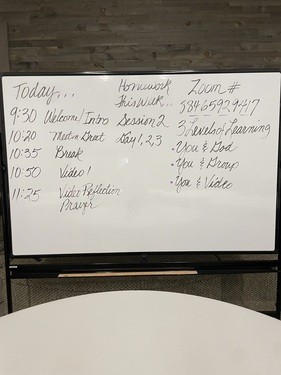 Today...
9:30 Welcome/Intro
10:20 Meet n Great
10:35 Break
10:50 Video!
11:25 Video Reflection
Prayer
Homework
This Week...
Session 2
Day 1, 2, 3
Zoom #
58465929417
3 Levels of Learning
• You & God
• You & Group
• You & Video